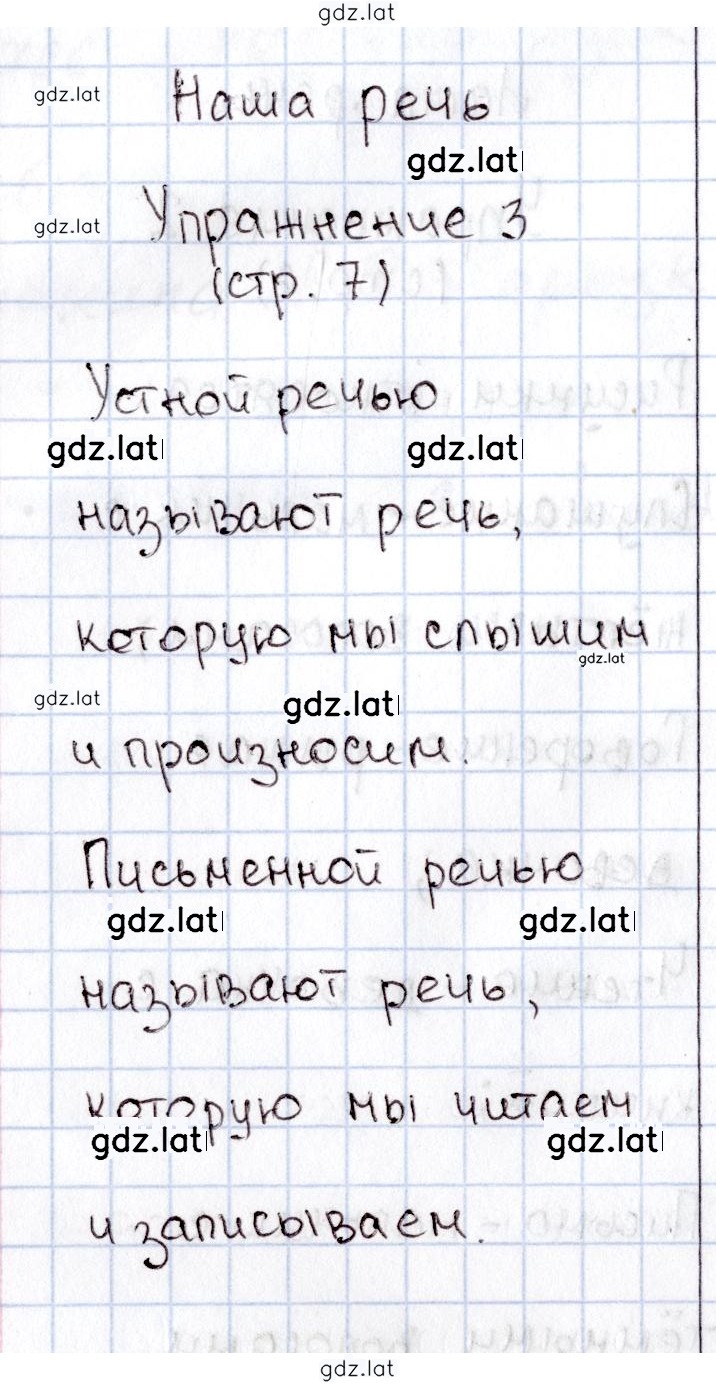 gdz.lat
gdz.lat
Наша речь
gdz.lat
gdz.lat
Упражнение 3
(стр. 7)
Устной речью
gdz.lat gdz.lat
называют речь,
которую мы слышим
gdz.lat
gdz.lat gdz.lat
и произносим.
Письменной речью
gdz.lat gdz.lat
называют речь,
которую мы читаем
gdz.lat gdz.lat
и записываем.
gdz.lat